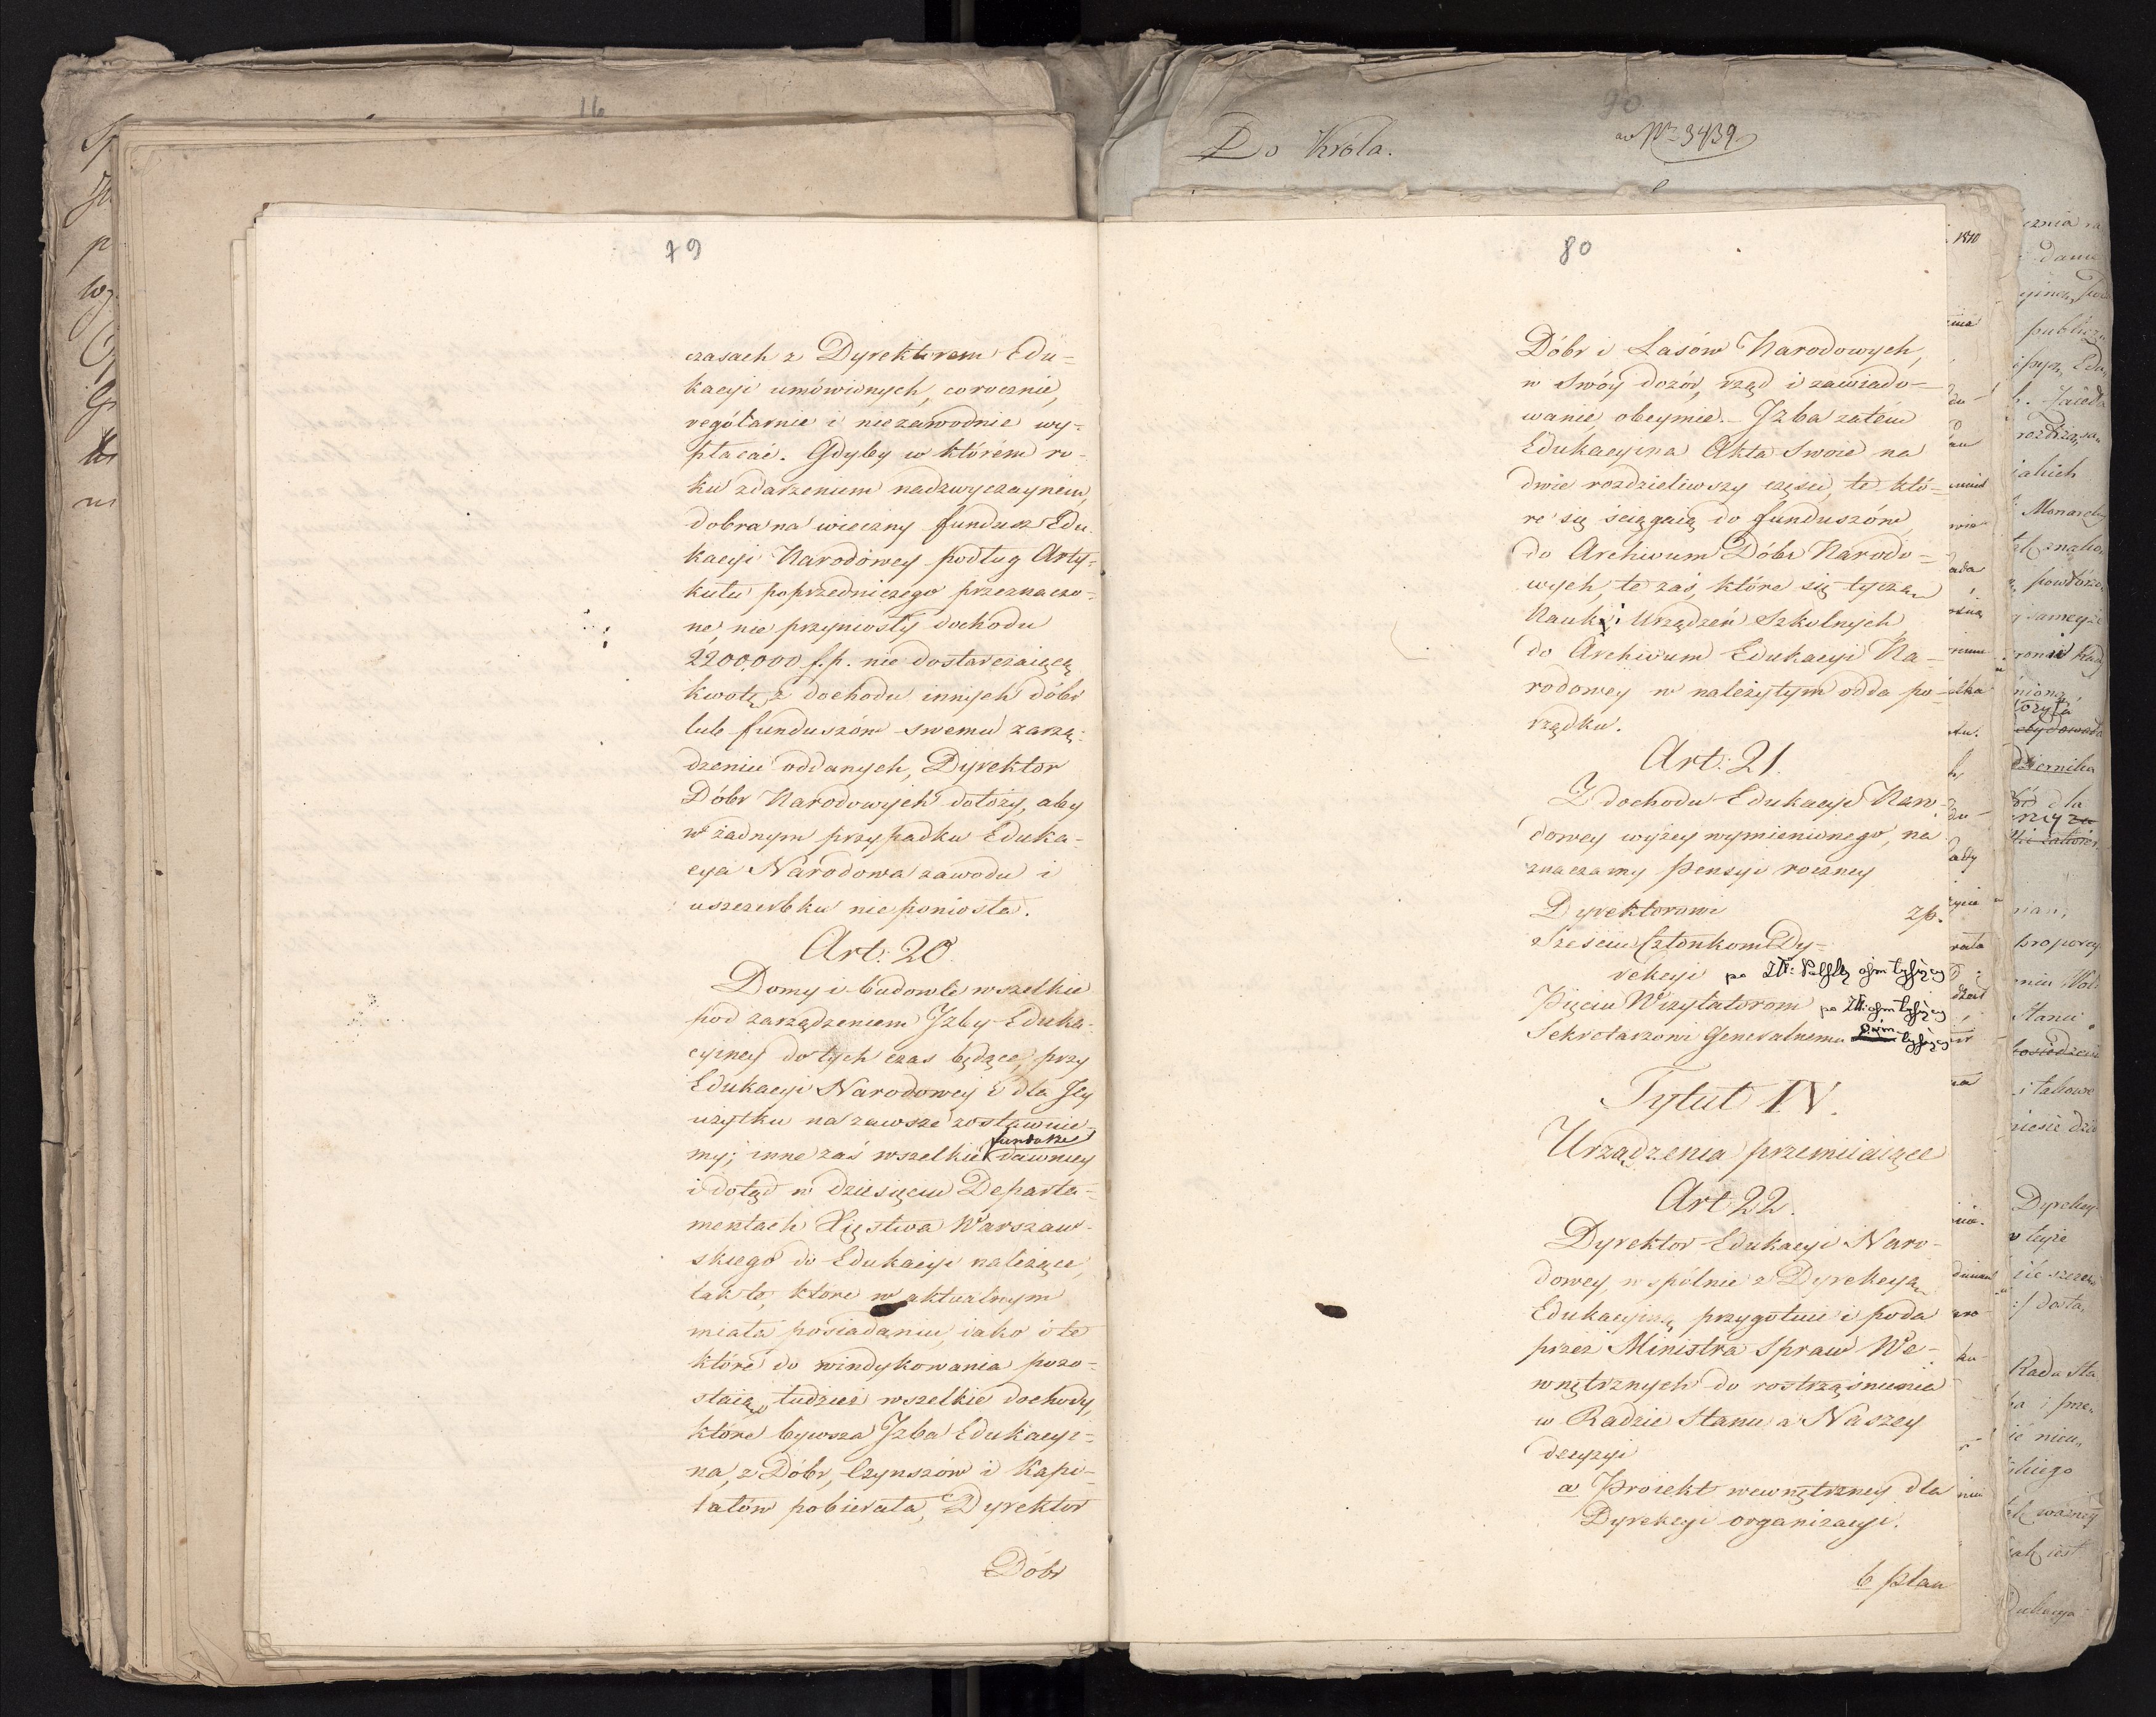 16
79
czasach z Dyrektorem Edu=
kacyi umówionych, corocznie,
regótarnie i niezawodnie wy=
płacać. Gdyby w którém ro-
ku zdarzeniem nadzwyczaynem,
dobra na wieczny fundusz Edu-
kacyi Narodowey podług Arty=
kułu poprzedniczego przeznaczo=
ne, nie przyniosły dochodu
2200,000 f.p. nie dostarczaiącą
kwotę z dochodu innych dóbr
lub funduszów swemu zarzą=
dzeniu oddanych, Dyrektor
Dóbr Narodowych dołoży, aby
w żadnym przypadku Eduka=
cya Narodowa zawodu i
uszczerbku nie poniosła.
Art: 20.
Domy i budowle wszelkie
pod zarządzeniem Jzby Eduka-
cyiney do tych czas będące, przy
Edukacyi Narodowey i dla Jey
użytku na zawsze zostawuie-
my; inne zaś wszelkie fundusze dawniey
i dotąd w dziesięciu Departa=
mentach Xięstwa Warszaw-
skiego do Edukacyi należące,
tak te, które w aktualnym
miała posiadaniu, iako i te
które do windykowania pozo=
staią, tudzież wszelkie dochody,
które bywsza Jzba Edukacyi=
na, z Dóbr, Czynszów i Kapi=
tałów pobierała, Dyrektor
Dóbr
90
Do Króla.
ad Nr 3439
80
Dóbr i Lasów Narodowych,
w Swóy dozór, rząd i zawiado-
wanie obeymie. Jzba zatém
Edukacyina Akta Swoie na
dwie rozdzieliwszy części, te któ=
re się ściągaią do funduszów
do Archivum Dóbr Narodo=
wych, te zaś, które się tyczą
Nauk i Urządzeń Szkolnych
do Archivum Edukacyi Na=
rodowey w należytym odda po-
rządku.
Art: 21.
Z dochodu Edukacyi Naro-
dowey wyżey wymienionego, na
znaczamy Pensyi roczney
Dyrektorowi zp.
Sześciu Członkom Dy=
rekcyi po Zł:
Pięciu Wizytatorom po Zł: ośm tysięcy
Sekretarzowi Generalnemu tysięcy
Tytuł IV.
Urządzenia przemiiaiące
Art: 22.
Dyrektor Edukacyi Naro-
dowey, wspólnie z Dyrekcyą
Edukacyiną przygotuie i poda
przez Ministra Spraw We=
wnętrznych do roztrząśnienia
w Radzie Stanu a Naszey
decyzyi
a Proiekt wewnętrzney dla
Dyrekcyi organizacyi.
b Plan